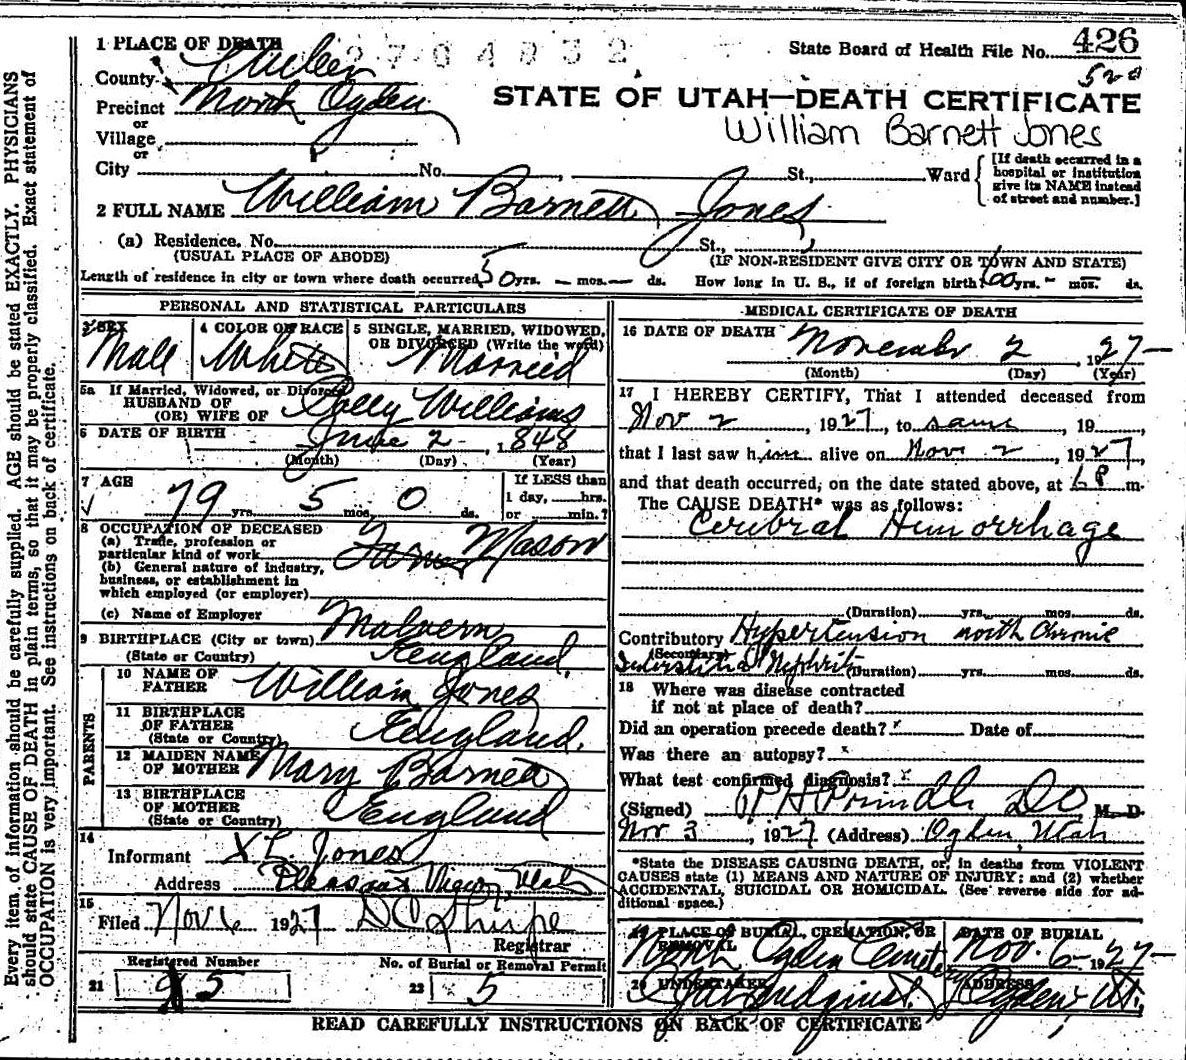 1 PLACE OF DEATH 2704932 State Board of Health File No. 426
County Weber 520
Precinct North Ogden STATE OF UTAH—DEATH CERTIFICATE
or
Village William Barnett Jones
or
City No. , St., Ward [If death occurred in a hospital or institution give its NAME instead of street and number.]
2 FULL NAME William Barnett Jones
(a) Residence. No. St.,
(USUAL PLACE OF ABODE) (IF NON-RESIDENT GIVE CITY OR TOWN AND STATE)
Length of residence in city or town where death occurred 50 yrs. — mos. — ds. How long in U. S., if of foreign birth? 60 yrs. - mos. ds.
PERSONAL AND STATISTICAL PARTICULARS
3 SEX Male
4 COLOR OR RACE White
5 SINGLE, MARRIED, WIDOWED,
OR DIVORCED (Write the word)
Married
5a If Married, Widowed, or Divorced
HUSBAND OF
(OR) WIFE OF Polly Williams
6 DATE OF BIRTH
June 2 , 1848
(Month) (Day) (Year)
7 AGE
79 yrs. 5 mos. 0 ds.
If LESS than
1 day, hrs.
or min.?
8 OCCUPATION OF DECEASED
(a) Trade, profession or
particular kind of work Mason
(b) General nature of industry,
business, or establishment in
which employed (or employer)
(c) Name of Employer
9 BIRTHPLACE (City or town) Malvern
(State or Country) England
PARENTS
10 NAME OF
FATHER William Jones
11 BIRTHPLACE
OF FATHER
(State or Country) England.
12 MAIDEN NAME
OF MOTHER Mary Barnett
13 BIRTHPLACE
OF MOTHER
(State or Country) England
14
Informant Jones
Address Pleasant View, Utah
15
Filed Nov 6 1927 D C Sharpe
Registrar
Registered Number No. of Burial or Removal Permit
21 95 22 5
MEDICAL CERTIFICATE OF DEATH
16 DATE OF DEATH November 2 , 1927—
(Month) (Day) (Year)
17 I HEREBY CERTIFY, That I attended deceased from
Nov 2 , 1927, to same , 19
that I last saw him alive on Nov 2 , 1927,
and that death occurred, on the date stated above, at 6 P m.
The CAUSE DEATH* was as follows:
Cerebral Hemorrhage
(Duration) yrs. mos. ds.
Contributory Hypertension with Chronic
(Secondary)
Interstitial Nephritis (Duration) yrs. mos. ds.
18 Where was disease contracted
if not at place of death?
Did an operation precede death? Date of
Was there an autopsy?
What test confirmed diagnosis?
(Signed) D O M. D.
Nov 3 , 1927 (Address) Ogden, Utah
*State the DISEASE CAUSING DEATH, or, in deaths from VIOLENT
CAUSES state (1) MEANS AND NATURE OF INJURY; and (2) whether
ACCIDENTAL, SUICIDAL OR HOMICIDAL. (See reverse side for ad-
ditional space.)
19 PLACE OF BURIAL, CREMATION, OR
REMOVAL
North Ogden Cemetery
DATE OF BURIAL
Nov. 6- 1927-
20 UNDERTAKER
ADDRESS
Ogden, Ut.
READ CAREFULLY INSTRUCTIONS ON BACK OF CERTIFICATE
Every item of information should be carefully supplied. AGE should be stated EXACTLY. PHYSICIANS
should state CAUSE OF DEATH in plain terms, so that it may be properly classified. Exact statement of
OCCUPATION is very important. See instructions on back of certificate.